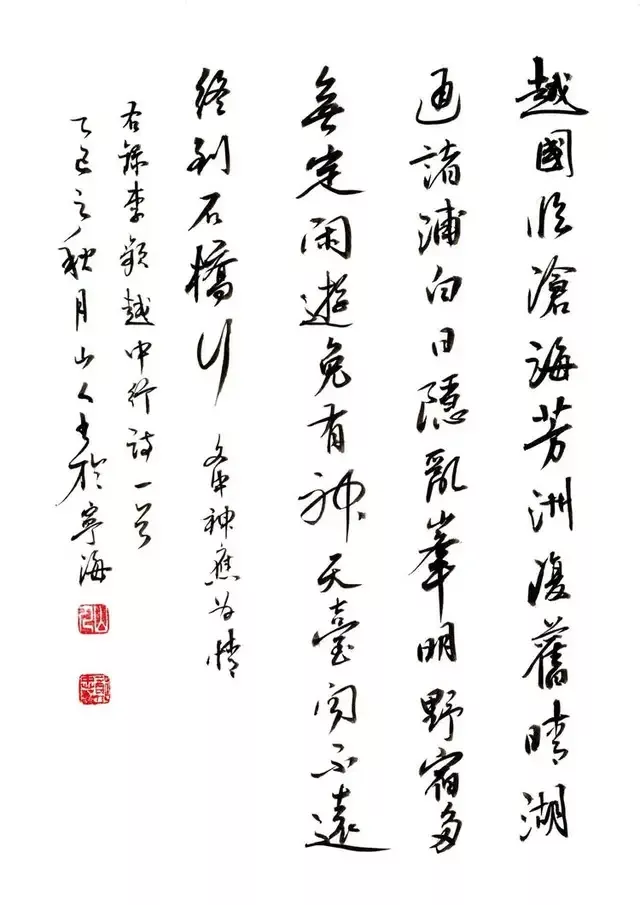 越國臨滄海芳洲復舊晴湖
通諸浦白日隱亂峯明野宿多
無定閑遊免有神天臺聞不遠
終到石橋行 文中神應為情
右錄李頻越中行詩一首
乙巳之秋月山人書於寧海